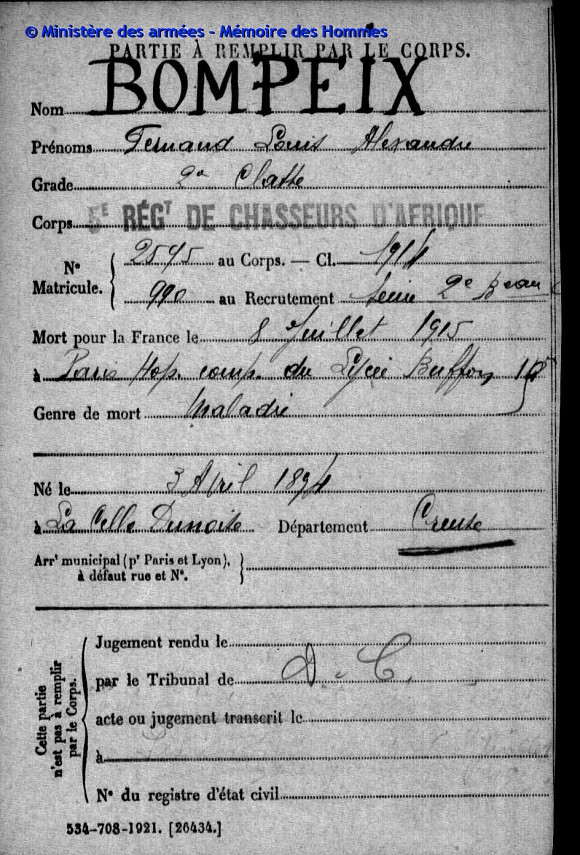 © Ministère des armées - Mémoire des Hommes
PARTIE À REMPLIR PAR LE CORPS.
Nom BOMPEIX
Prénoms Fernand Louis Alexandre
Grade 2e Classe
Corps 5E RÉGT DE CHASSEURS D'AFRIQUE
N° Matricule. { 2595 au Corps. — Cl. 1914
990 au Recrutement Seine 2e Bureau
Mort pour la France le 8 Juillet 1915
à Paris Hop. comp. du Lycée Buffon 15
Genre de mort Maladie
Né le 3 Avril 1894
à La Celle Dunoise Département Creuse
Arrt municipal (pr Paris et Lyon), }
à défaut rue et N°.
Cette partie n'est pas à remplir par le Corps. {
Jugement rendu le
par le Tribunal de D. C.
acte ou jugement transcrit le
à
N° du registre d'état civil
534-708-1921. [26434.]